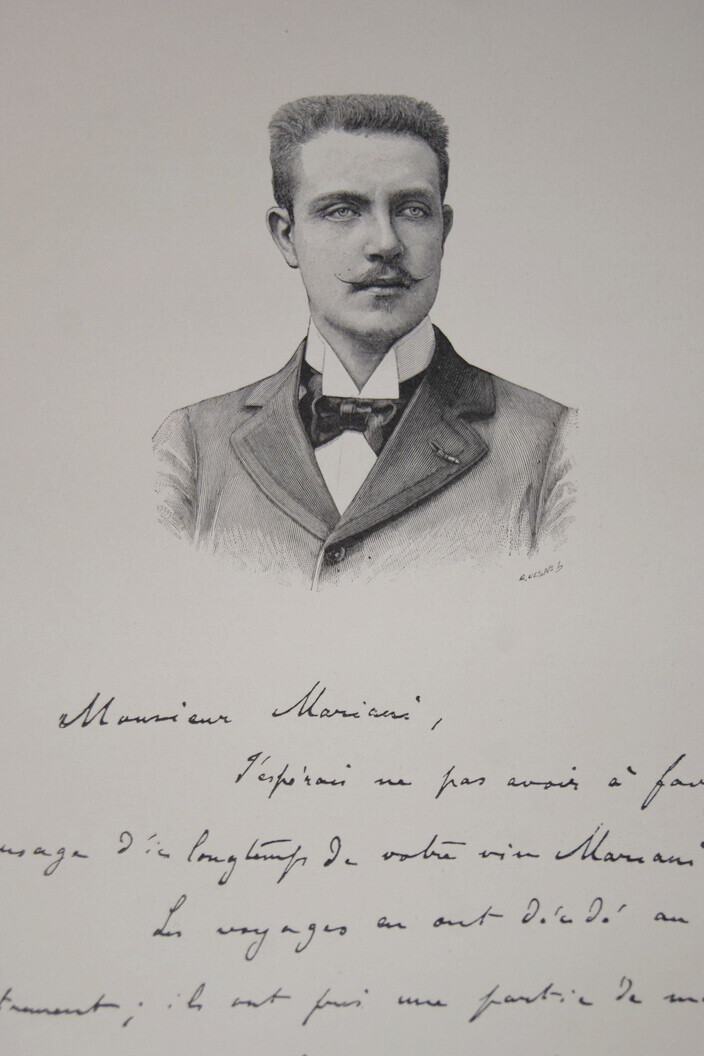 Monsieur Mariani,
J'espérais ne pas avoir à
usage d'ici longtemps de votre vin Mariani
Les voyages en ont décidé au
ils ont pris une partie de